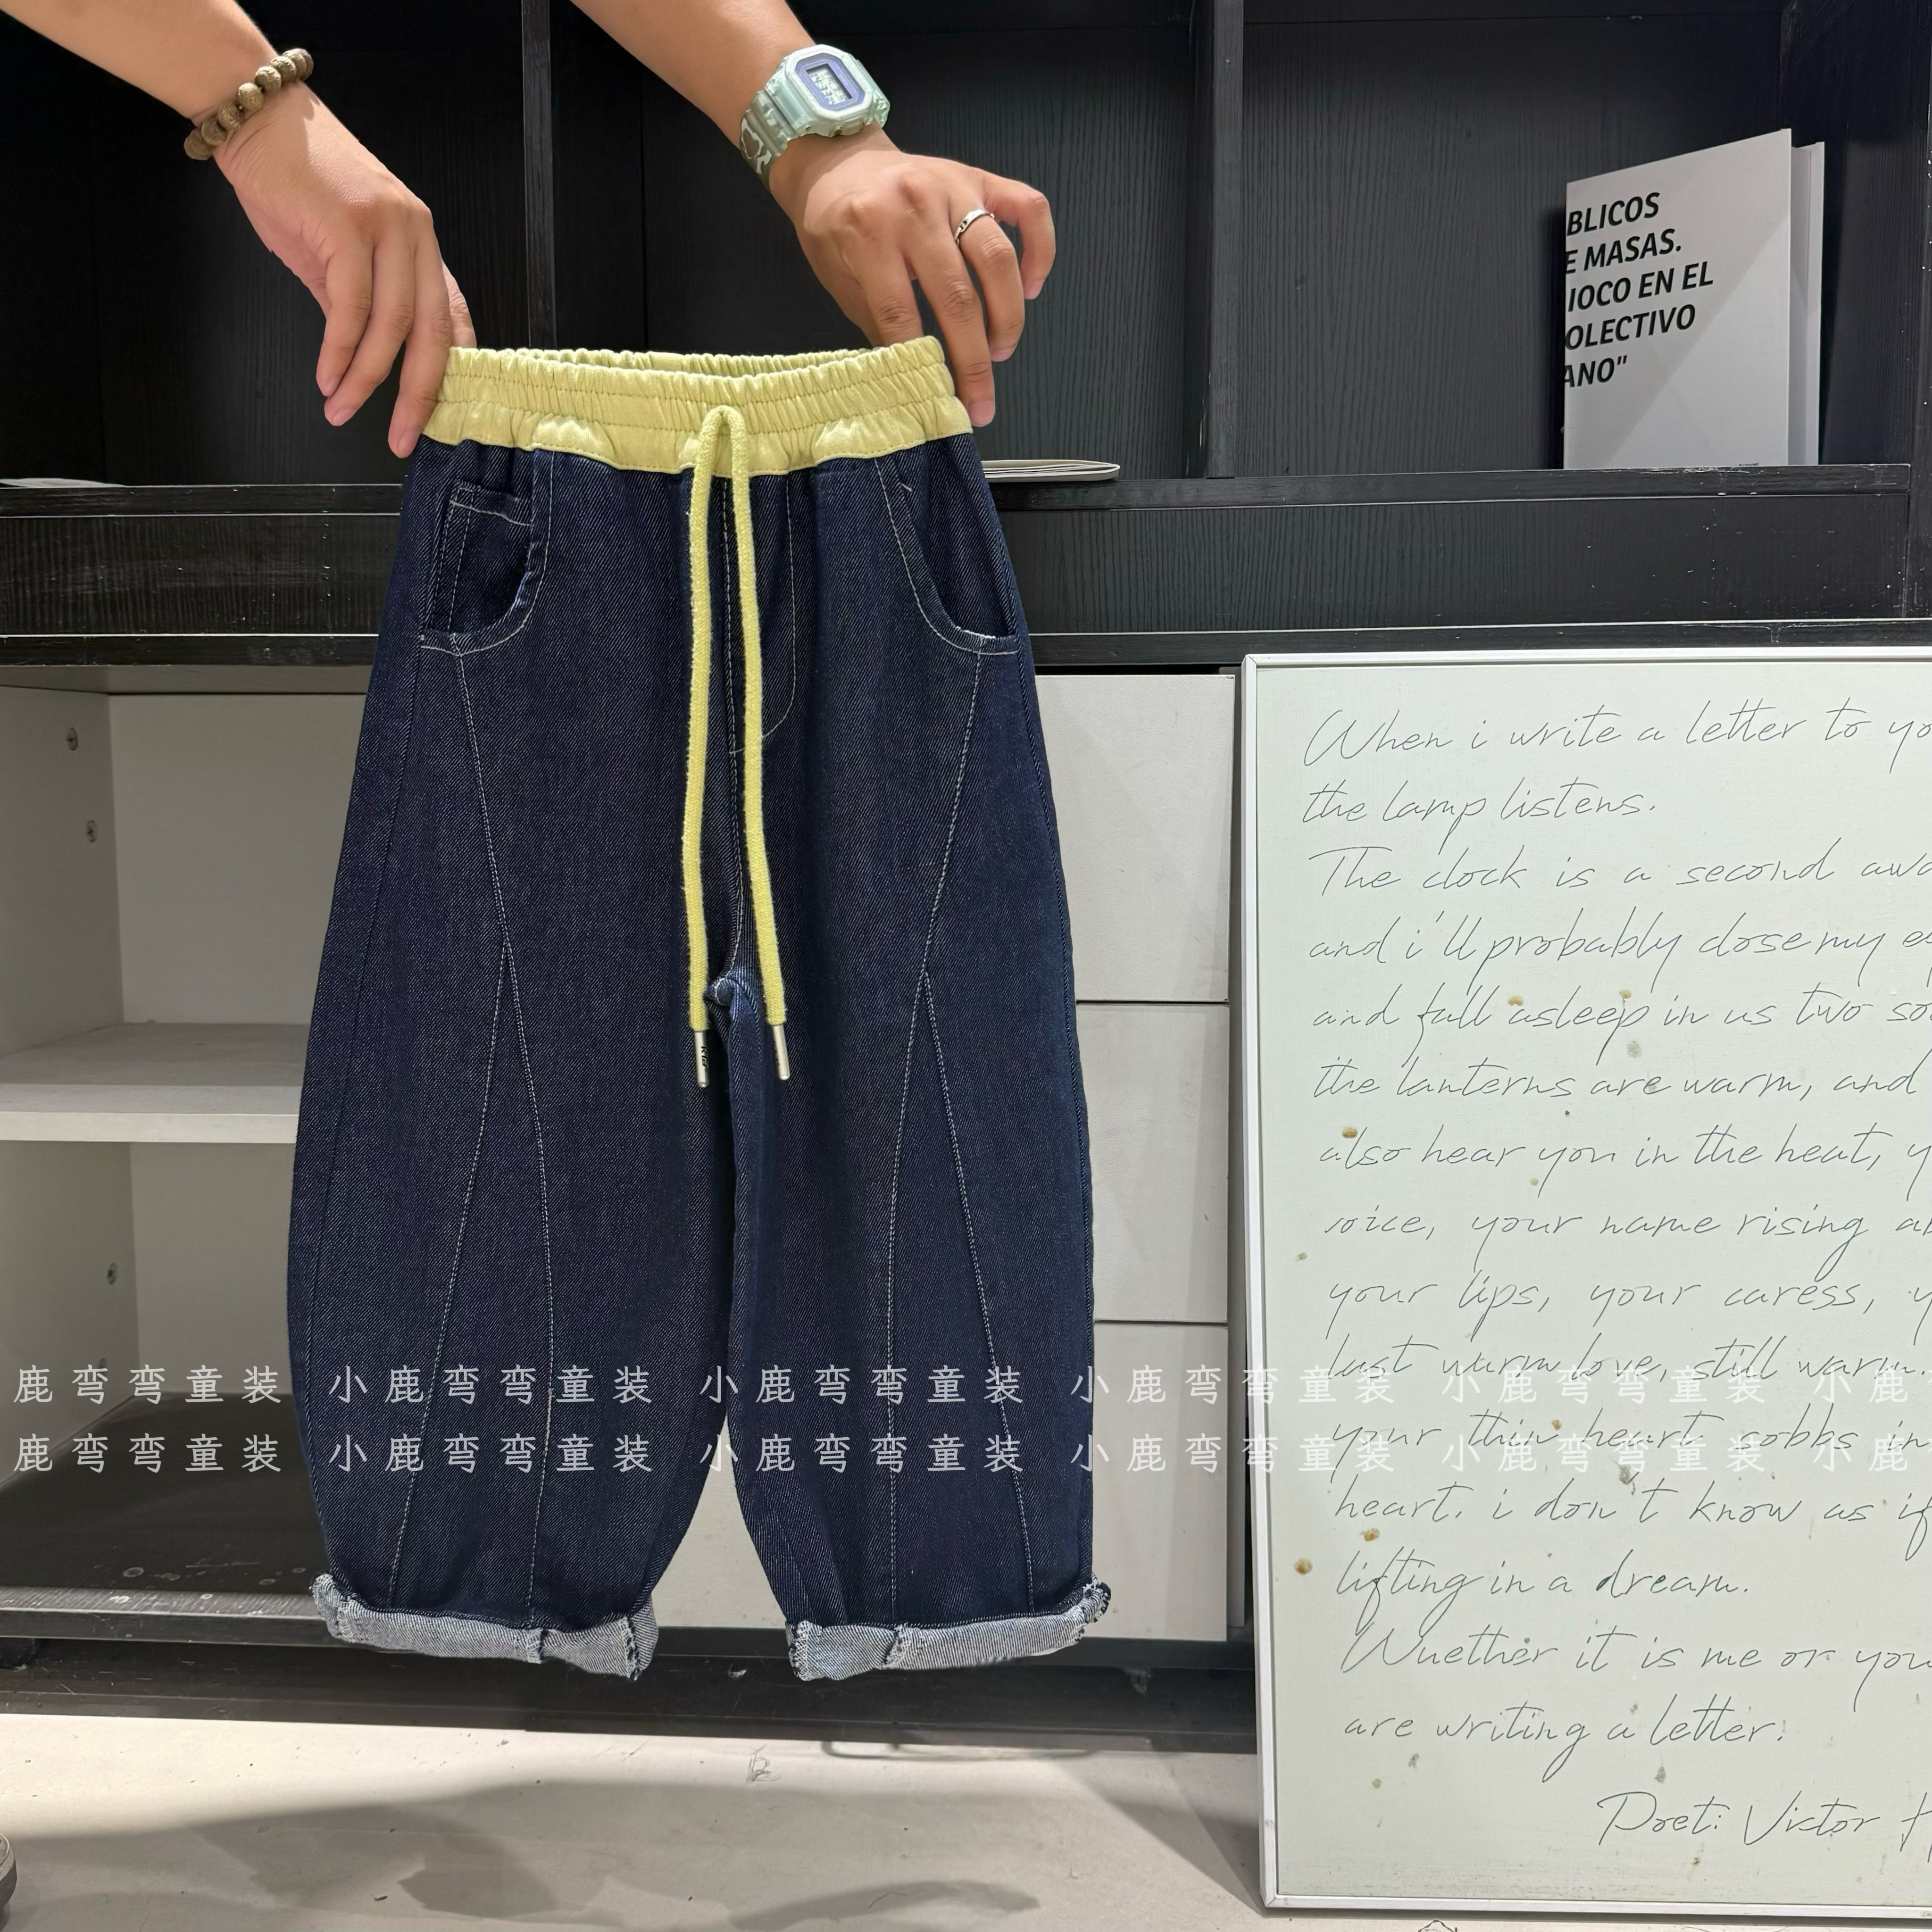 BLICOS
E MASAS.
IOCO EN EL
OLECTIVO
ANO"
When i write a letter to yo
the lamp listens.
The clock is a second awa
and i'll probably close my e
and fall asleep in us two so
the lanterns are warm, and
also hear you in the heat, y
voice, your name rising ab
your lips, your caress, y
last warm love, still warm.
your thin heart sobbs in
heart. i don't know as if
lifting in a dream.
Wuether it is me or you
are writing a letter.
Poet: Victor H
鹿弯弯童装 小鹿弯弯童装 小鹿弯弯童装 小鹿弯弯童装 小鹿弯弯童装 小鹿
鹿弯弯童装 小鹿弯弯童装 小鹿弯弯童装 小鹿弯弯童装 小鹿弯弯童装 小鹿